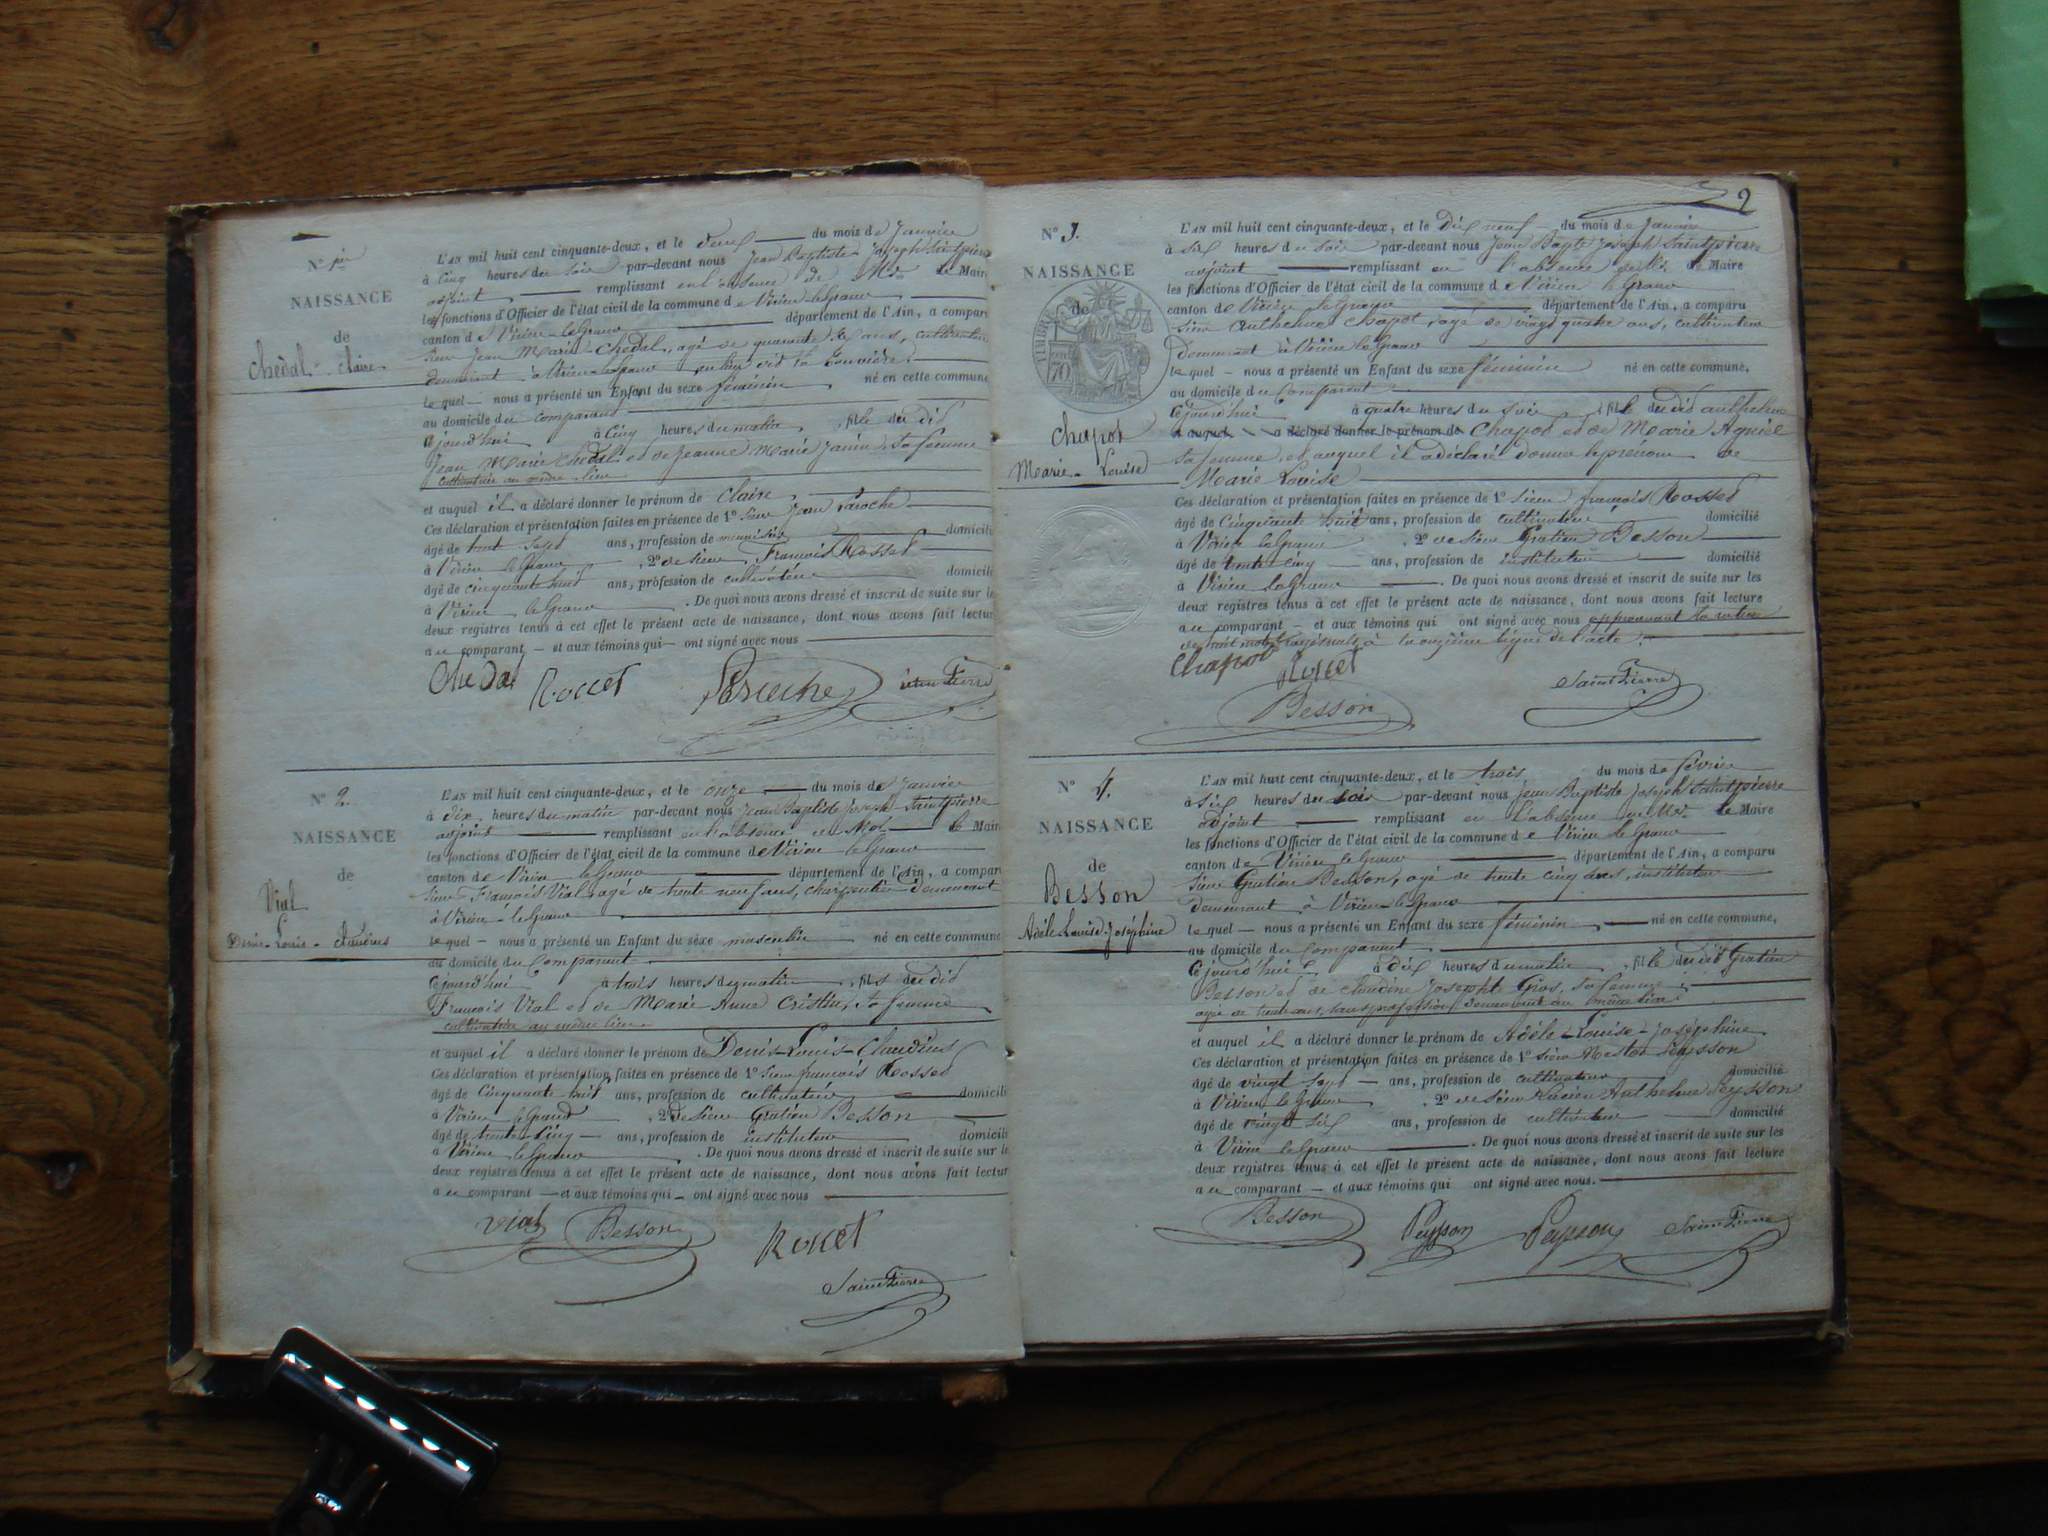 N° 1er
NAISSANCE
de
Chedal Claire
L'AN mil huit cent cinquante-deux, et le deux du mois de Janvier
à Cinq heures du soir par-devant nous Jean Baptiste Joseph Saintpierre
adjoint remplissant en l'absence de Mr le Maire
les fonctions d'Officier de l'état civil de la commune de Virieu le Grand
canton de Virieu le Grand département de l'Ain, a comparu
sieur Jean Marie Chedal, agé de quarante ans, cultivateur
demeurant à Virieu le Grand au lieu dit la
le quel nous a présenté un Enfant du sexe féminin né en cette commune
au domicile du comparant
Cejourd'hui à Cinq heures du matin, fille du dit
Jean Marie Chedal et de Jeanne Marie Janin sa femme
cultivatrice au même lieu
et auquel il a déclaré donner le prénom de Claire
Ces déclaration et présentation faites en présence de 1° sieur Jean Peroche
âgé de trente sept ans, profession de domicilié
à Virieu le Grand, 2° de sieur François Rosset
âgé de cinquante huit ans, profession de cultivateur domicilié
à Virieu le Grand. De quoi nous avons dressé et inscrit de suite sur les
deux registres tenus à cet effet le présent acte de naissance, dont nous avons fait lecture
au comparant et aux témoins qui ont signé avec nous
Chedal Rosset Peroche SaintPierre
N° 2.
NAISSANCE
de
Vial
Denis-Louis-Claudius
L'AN mil huit cent cinquante-deux, et le onze du mois de Janvier
à dix heures du matin par-devant nous Jean Baptiste Joseph Saintpierre
adjoint remplissant en l'absence de Mr le Maire
les fonctions d'Officier de l'état civil de la commune de Virieu le Grand
canton de Virieu le Grand département de l'Ain, a comparu
sieur François Vial agé de trente neuf ans, charpentier demeurant
à Virieu-le-Grand
le quel nous a présenté un Enfant du sexe masculin né en cette commune
au domicile du Comparant
Cejourd'hui à trois heures du matin, fils du dit
François Vial et de Marie Anne Cristin, sa femme
cultivatrice au même lieu
et auquel il a déclaré donner le prénom de Denis-Louis-Claudius
Ces déclaration et présentation faites en présence de 1° sieur françois Rosset
âgé de Cinquante huit ans, profession de cultivateur domicilié
à Virieu le Grand, 2° de sieur Gratien Besson
âgé de trente-cinq ans, profession de instituteur domicilié
à Virieu le Grand. De quoi nous avons dressé et inscrit de suite sur les
deux registres tenus à cet effet le présent acte de naissance, dont nous avons fait lecture
au comparant et aux témoins qui ont signé avec nous
Vial Besson Rosset
SaintPierre
2
N° 3.
NAISSANCE
de
TIMBRE
70
Chapot
Marie-Louise
L'AN mil huit cent cinquante-deux, et le Dix neuf du mois de Janvier
à six heures du soir par-devant nous Jean Bapte Joseph Saintpierre
adjoint remplissant en l'absence de Mr le Maire
les fonctions d'Officier de l'état civil de la commune de Virieu le Grand
canton de Virieu le Grand département de l'Ain, a comparu
sieur Anthelme Chapot, agé de vingt quatre ans, cultivateur
demeurant à Virieu le Grand
le quel nous a présenté un Enfant du sexe féminin né en cette commune,
au domicile du Comparant
Cejourd'hui à quatre heures du soir, fille du dit anthelme
et auquel a déclaré donner le prénom de Chapot et de Marie
sa femme, et auquel il a déclaré donner le prénom de
Marie Louise
Ces déclaration et présentation faites en présence de 1° sieur françois Rosset
âgé de Cinquante huit ans, profession de cultivateur domicilié
à Virieu le Grand, 2° de sieur Gratien Besson
âgé de trente cinq ans, profession de instituteur domicilié
à Virieu le Grand. De quoi nous avons dressé et inscrit de suite sur les
deux registres tenus à cet effet le présent acte de naissance, dont nous avons fait lecture
au comparant et aux témoins qui ont signé avec nous approuvant la rature
de à la onzième ligne de l'acte.
Chapot Rosset SaintPierre
Besson
N° 4.
NAISSANCE
de
Besson
Adèle Louise-Joséphine
L'AN mil huit cent cinquante-deux, et le trois du mois de février
à six heures du soir par-devant nous Jean Baptiste Joseph Saintpierre
adjoint remplissant en l'absence de Mr le Maire
les fonctions d'Officier de l'état civil de la commune de Virieu le Grand
canton de Virieu le Grand département de l'Ain, a comparu
sieur Gratien Besson, agé de trente cinq ans, instituteur
demeurant à Virieu-le-Grand
le quel nous a présenté un Enfant du sexe féminin né en cette commune,
au domicile du Comparant
Cejourd'hui à dix heures du matin, fille du dit Gratien
Besson et de Claudine Josephte Gros, sa femme
agée de trente ans, sans profession, demeurant au même lieu
et auquel il a déclaré donner le prénom de Adèle-Louise-Joséphine
Ces déclaration et présentation faites en présence de 1° sieur Peysson
âgé de vingt sept ans, profession de cultivateur domicilié
à Virieu le Grand, 2° de sieur Anthelme Peysson
âgé de vingt six ans, profession de cultivateur domicilié
à Virieu le Grand. De quoi nous avons dressé et inscrit de suite sur les
deux registres tenus à cet effet le présent acte de naissance, dont nous avons fait lecture
au comparant et aux témoins qui ont signé avec nous.
Besson Peysson Peysson SaintPierre